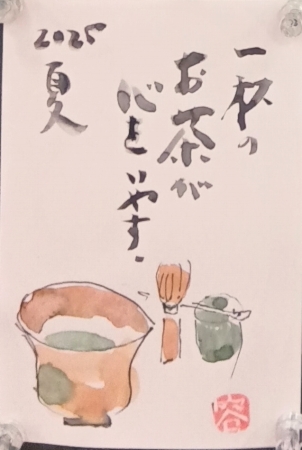 一杯の
お茶が
心をいやす.
2025
夏
容